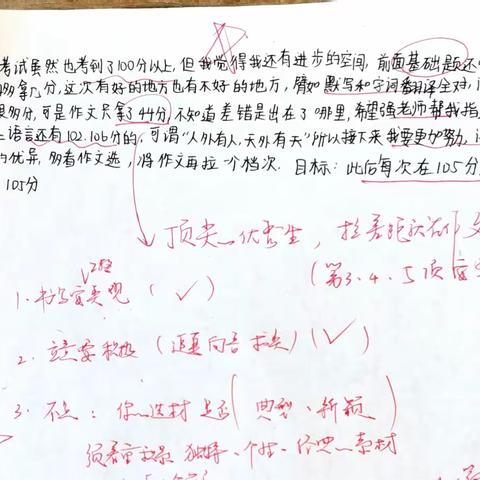 考试虽然也考到了100分以上,但我觉得我还有进步的空间,前面基础题还
多拿几分,这次有好的地方也有不好的地方,譬如默写和字词翻译全对,
多分,可是作文只拿了44分,不知道差错是出在了哪里,希望强老师帮我指
语言还有102.106分的,可谓“人外有人,天外有天”所以接下来我要更加努力,
优异,多看作文选,将作文再拉一个档次.目标:此后每次在105分
105分
顶尖优秀生,拉差距就在作文
(第3.4.5项
1.书写要美观(✓)
2.立意要积极(真向善)(✓)
3.不足:你选材是否(典型、新颖)
须看重独特、个性、经典素材